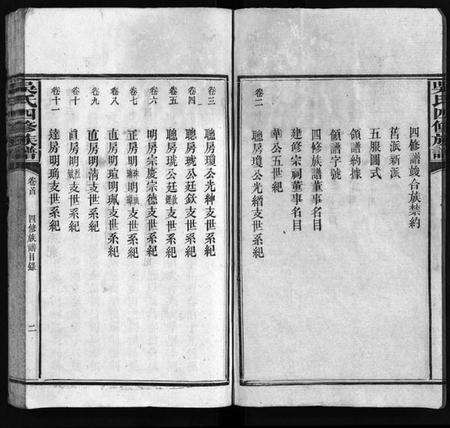 吳氏四修族譜
四修譜竣合族禁約
舊派新派
五服圖式
領譜納據
領譜字號
四修族譜董事名目
建修宗祠董事名目
華公五世紀
卷二
聰房瓊公光縉支世系紀
卷三
聰房瓊公光紳支世系紀
卷四
聰房琥公廷欽支世系紀
卷五
聰房琥公廷支世系紀
卷六
明房宗慶宗德支世系紀
卷七
正房明支世系紀
卷八
直房明瑄明珮支世系紀
卷九
直房明清支世系紀
卷十
貞房明支世系紀
卷十一
達房明瑀支世系紀
吳氏四修族譜
卷首
四修族譜目錄
二